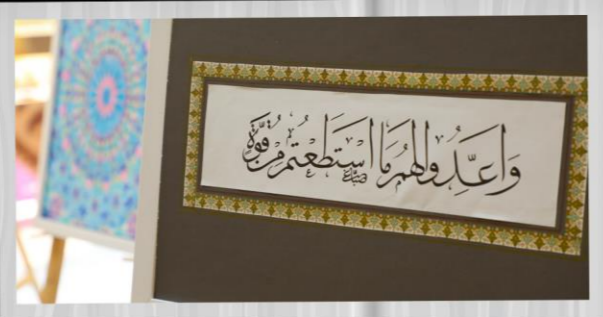 وَاَعِدُّوالَهُمْ مَااسْتَطَعْتُمْ مِنْ قُوَّةٍ